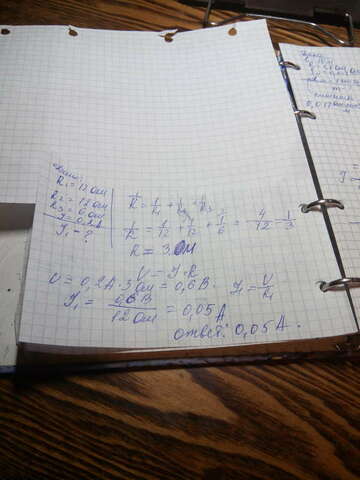 Дано:
R₁ = 12 Ом
R₂ = 12 Ом
R₃ = 6 Ом
J = 0,2А
J₁ - ?
1/R = 1/R₁ + 1/R₂ + 1/R₃
1/R = 1/12 + 1/12 + 1/6 = 4/12 = 1/3
R = 3 Ом
U = J · R
U = 0,2А · 3 Ом = 0,6 В.
J₁ = U/R₁
J₁ = 0,6 В / 12 Ом = 0,05 А
ответ: 0,05 А.